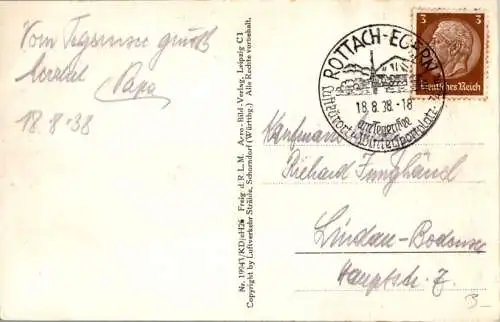 Vom Tegernsee grüßt
herzlich Papa
18.8.38
Nr. 19943/KD/eH28 Freig d. R. L. M. Aero-Bild-Verlag, Leipzig C1
Copyright by Luftverkehr Strähle, Schorndorf (Württbg.) Alle Rechte vorbehalt.
ROTTACH-EGERN
18.8.38.-18
am Tegernsee
Kurort u. Wintersportplatz
3 3
Deutsches Reich
Kaufmann
Richard Junghänel
Lindau-Bodensee
Hauptstr. 7.
3-